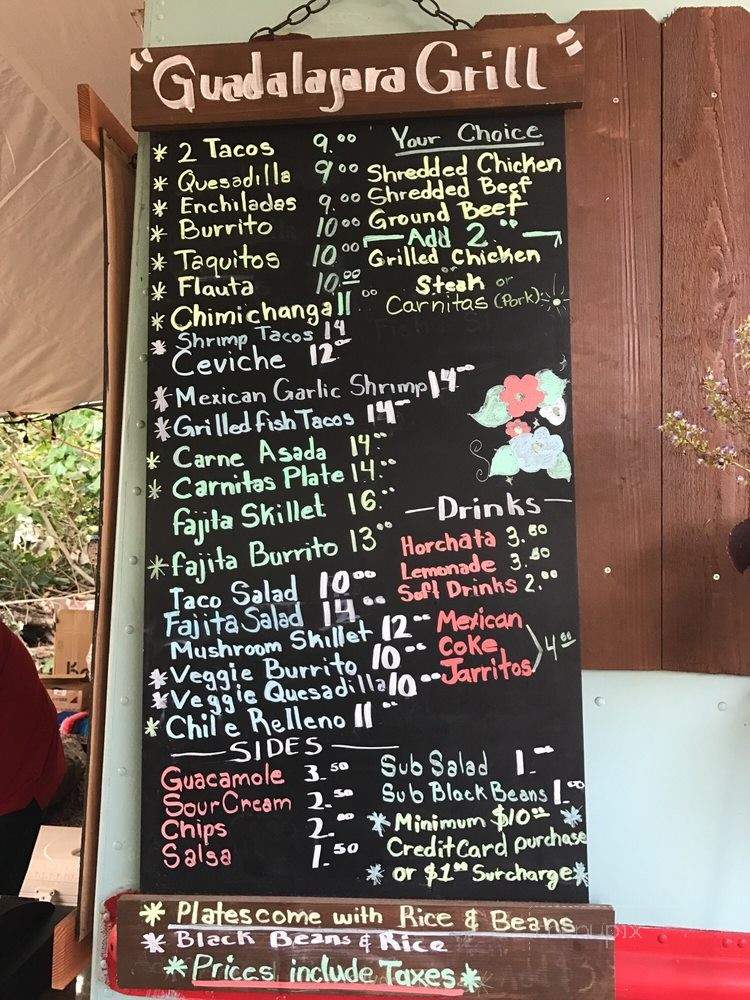 "Guadalajara Grill"
* 2 Tacos 9.00
* Quesadilla 9.00
* Enchiladas 9.00
* Burrito 10.00
* Taquitos 10.00
* Flauta 10.00
* Chimichanga 11.00
* Shrimp Tacos 14
Ceviche 12.-
* Mexican Garlic Shrimp 14.-
* Grilled fish Tacos 14.-
* Carne Asada 14.00
* Carnitas Plate 14.00
fajita Skillet 16.00
* fajita Burrito 13.00
Taco Salad 10.00
Fajita Salad 14.00
Mushroom Skillet 12.00
* Veggie Burrito 10.00
* Veggie Quesadilla 10.00
* Chile Relleno 11.00
Your Choice
Shredded Chicken
Shredded Beef
Ground Beef
Add 2.00
Grilled Chicken
or
Steak or
Carnitas (Pork)
- Drinks -
Horchata 3.50
Lemonade 3.50
Soft Drinks 2.00
Mexican
Coke
Jarritos 4.00
- SIDES -
Guacamole 3.50
Sour Cream 2.50
Chips 2.00
Salsa 1.50
Sub Salad 1.-
Sub Black Beans 1.00
* Minimum $10.00 *
Credit Card purchase
* or $1.00 Surcharge *
* Plates come with Rice & Beans
* Black Beans & Rice
* Prices include Taxes *